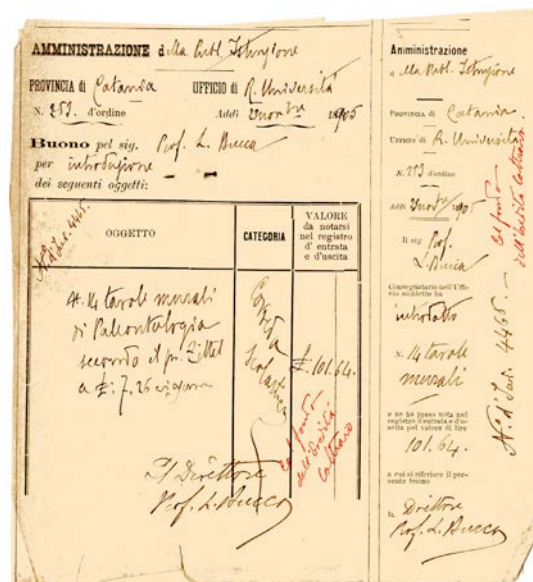 AMMINISTRAZIONE della Pubbl. Istruzione
PROVINCIA di Catania UFFICIO di R. Università
N. 253. d'ordine Addì 2 novbre 1905
Buono pel sig. Prof. L. Bucca
per introduzione
dei seguenti oggetti:
N.° d'Inv. 4465.
OGGETTO
CATEGORIA
VALORE
da notarsi
nel registro
d'entrata
e d'uscita
N. 14 tavole murali
di Paleontologia
secondo il pr. Zittel
a £: 7.26 ognuna
Scolastica
£. 101.64.
Sul fondo
dell'eredità
Il Direttore
Prof. L. Bucca
Amministrazione
della Pubbl. Istruzione
PROVINCIA di Catania
UFFICIO di R. Università
N. 253 d'ordine
Addì 2 novbre 1905
Il sig. Prof.
L. Bucca
Consegnatario nell'Uffi-
cio suddetto ha
introdotto
N. 14 tavole
murali
e ne ha preso nota nel
registro d'entrata e d'u-
scita pel valore di lire
101.64.
a cui si riferisce il pre-
sente buono
IL Direttore
Prof. L. Bucca
N.° d'Inv. 4465.—
Sul fondo
dell'eredità